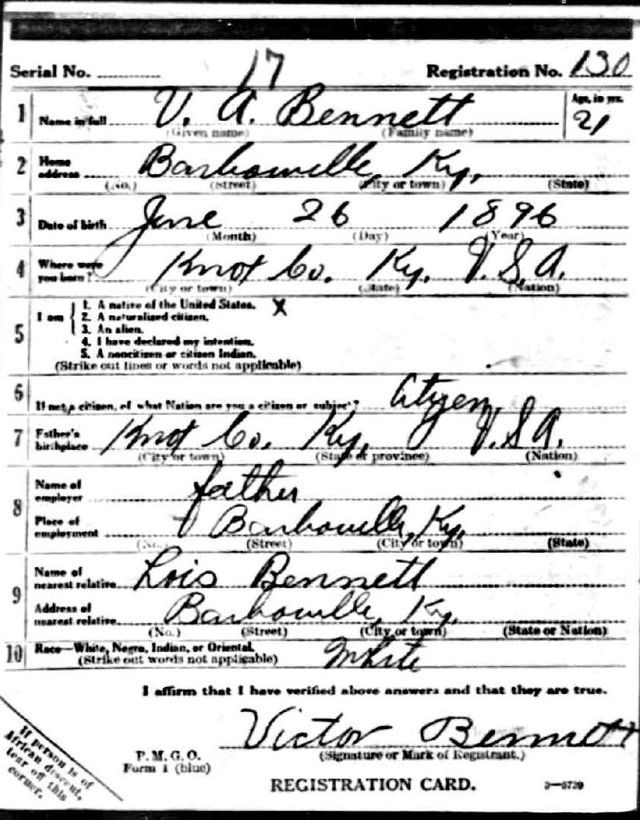 17
Serial No. Registration No. 130
1 Name in full V. A. Bennett Age, in yrs. 21
(Given name) (Family name)
2 Home address Barbourville, Ky.
(No.) (Street) (City or town) (State)
3 Date of birth June 26 1896
(Month) (Day) (Year)
4 Where were you born? Knox Co. Ky. U.S.A.
(City or town) (State) (Nation)
5 I am
1. A native of the United States. X
2. A naturalized citizen.
3. An alien.
4. I have declared my intention.
5. A noncitizen or citizen Indian.
(Strike out lines or words not applicable)
6 If not a citizen, of what Nation are you a citizen or subject? Citizen
7 Father's birthplace Knox Co. Ky. U.S.A.
(City or town) (State or province) (Nation)
8 Name of employer father
Place of employment Barbourville, Ky.
(No.) (Street) (City or town) (State)
9 Name of nearest relative Lois Bennett
Address of nearest relative Barbourville, Ky.
(No.) (Street) (City or town) (State or Nation)
10 Race—White, Negro, Indian, or Oriental.
(Strike out words not applicable) White
I affirm that I have verified above answers and that they are true.
Victor Bennett
(Signature or Mark of Registrant.)
P. M. G. O.
Form 1 (blue)
REGISTRATION CARD.
3—5739
If person is of
African descent,
tear off this
corner.